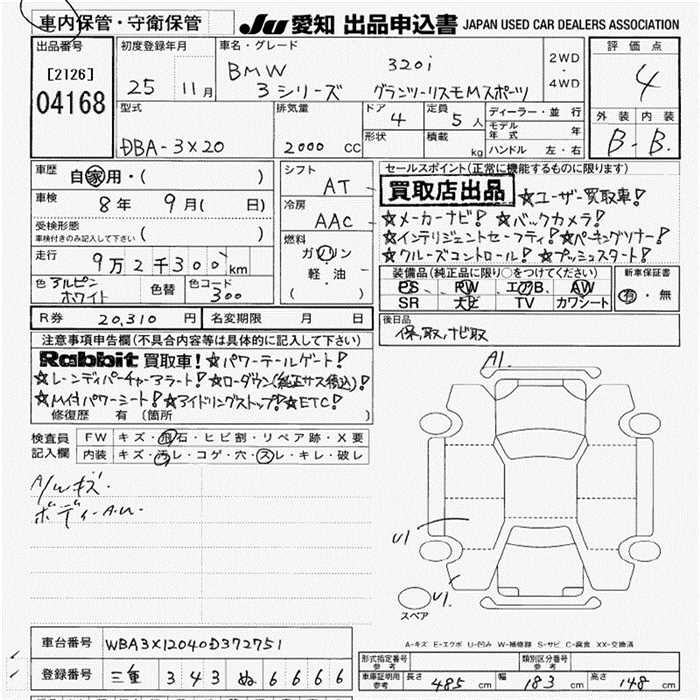 車内保管・守衛保管
JU 愛知 出品申込書 JAPAN USED CAR DEALERS ASSOCIATION
出品番号
[2126]
04168
初度登録年月
25 11月
車名・グレード
BMW 320i
3シリーズ グランツーリスモMスポーツ
2WD
・
4WD
評価点
4
外装 内装
B - B.
型式
DBA-3X20
排気量
2000 CC
ドア
4
定員
5人
形状
積載
kg
ディーラー・並行
モデル
年式 年
ハンドル 左・右
車歴
自家用・( )
車検
8年 9月( 日)
受検形態
車検付きのみ記入して下さい ( )
走行
9万2千300 km
色 アルピンホワイト
色替
色コード
300
シフト
AT
冷房
AAC
燃料
ガソリン
軽・油
( )
セールスポイント(正常に機能するものに限ります)
買取店出品 ☆ユーザー買取車!
☆メーカーナビ! ☆バックカメラ!
☆インテリジェントセーフティ! ☆パーキングソナー!
☆クルーズコントロール! ☆プッシュスタート!
装備品(純正品に限り○をつけてください)
PS PW エアB. AW
SR ナビ TV カワシート
新車保証書
有・無
後日品
保,取,ナビ取
R券 20,310円
名変期限 月 日
注意事項申告欄(不具合内容等は具体的に記入して下さい)
Rabbit 買取車! ☆パワーテールゲート!
☆レーンディパーチャーアラート! ☆ローダウン(純正サス積込)!
☆M付パワーシート! ☆アイドリングストップ! ☆ETC!
修復歴 有 〔箇所 〕
検査員
記入欄
FW キズ・飛石・ヒビ割・リペア跡・X要
内装 キズ・汚レ・コゲ・穴・スレ・キレ・破レ
A/wキズ.
ボディーA.u.
A1.
U1
U1.
スペア
A-キズ E-エクボ U-凹み W-補修跡 S-サビ C-腐食 XX-交換済
車台番号 WBA3X12040D372751
登録番号 三重 343 ぬ 6666
形式指定番号
参考
類別区分番号
参考
車庫証明用
参考
長さ 485 cm 幅 183 cm 高さ 148 cm